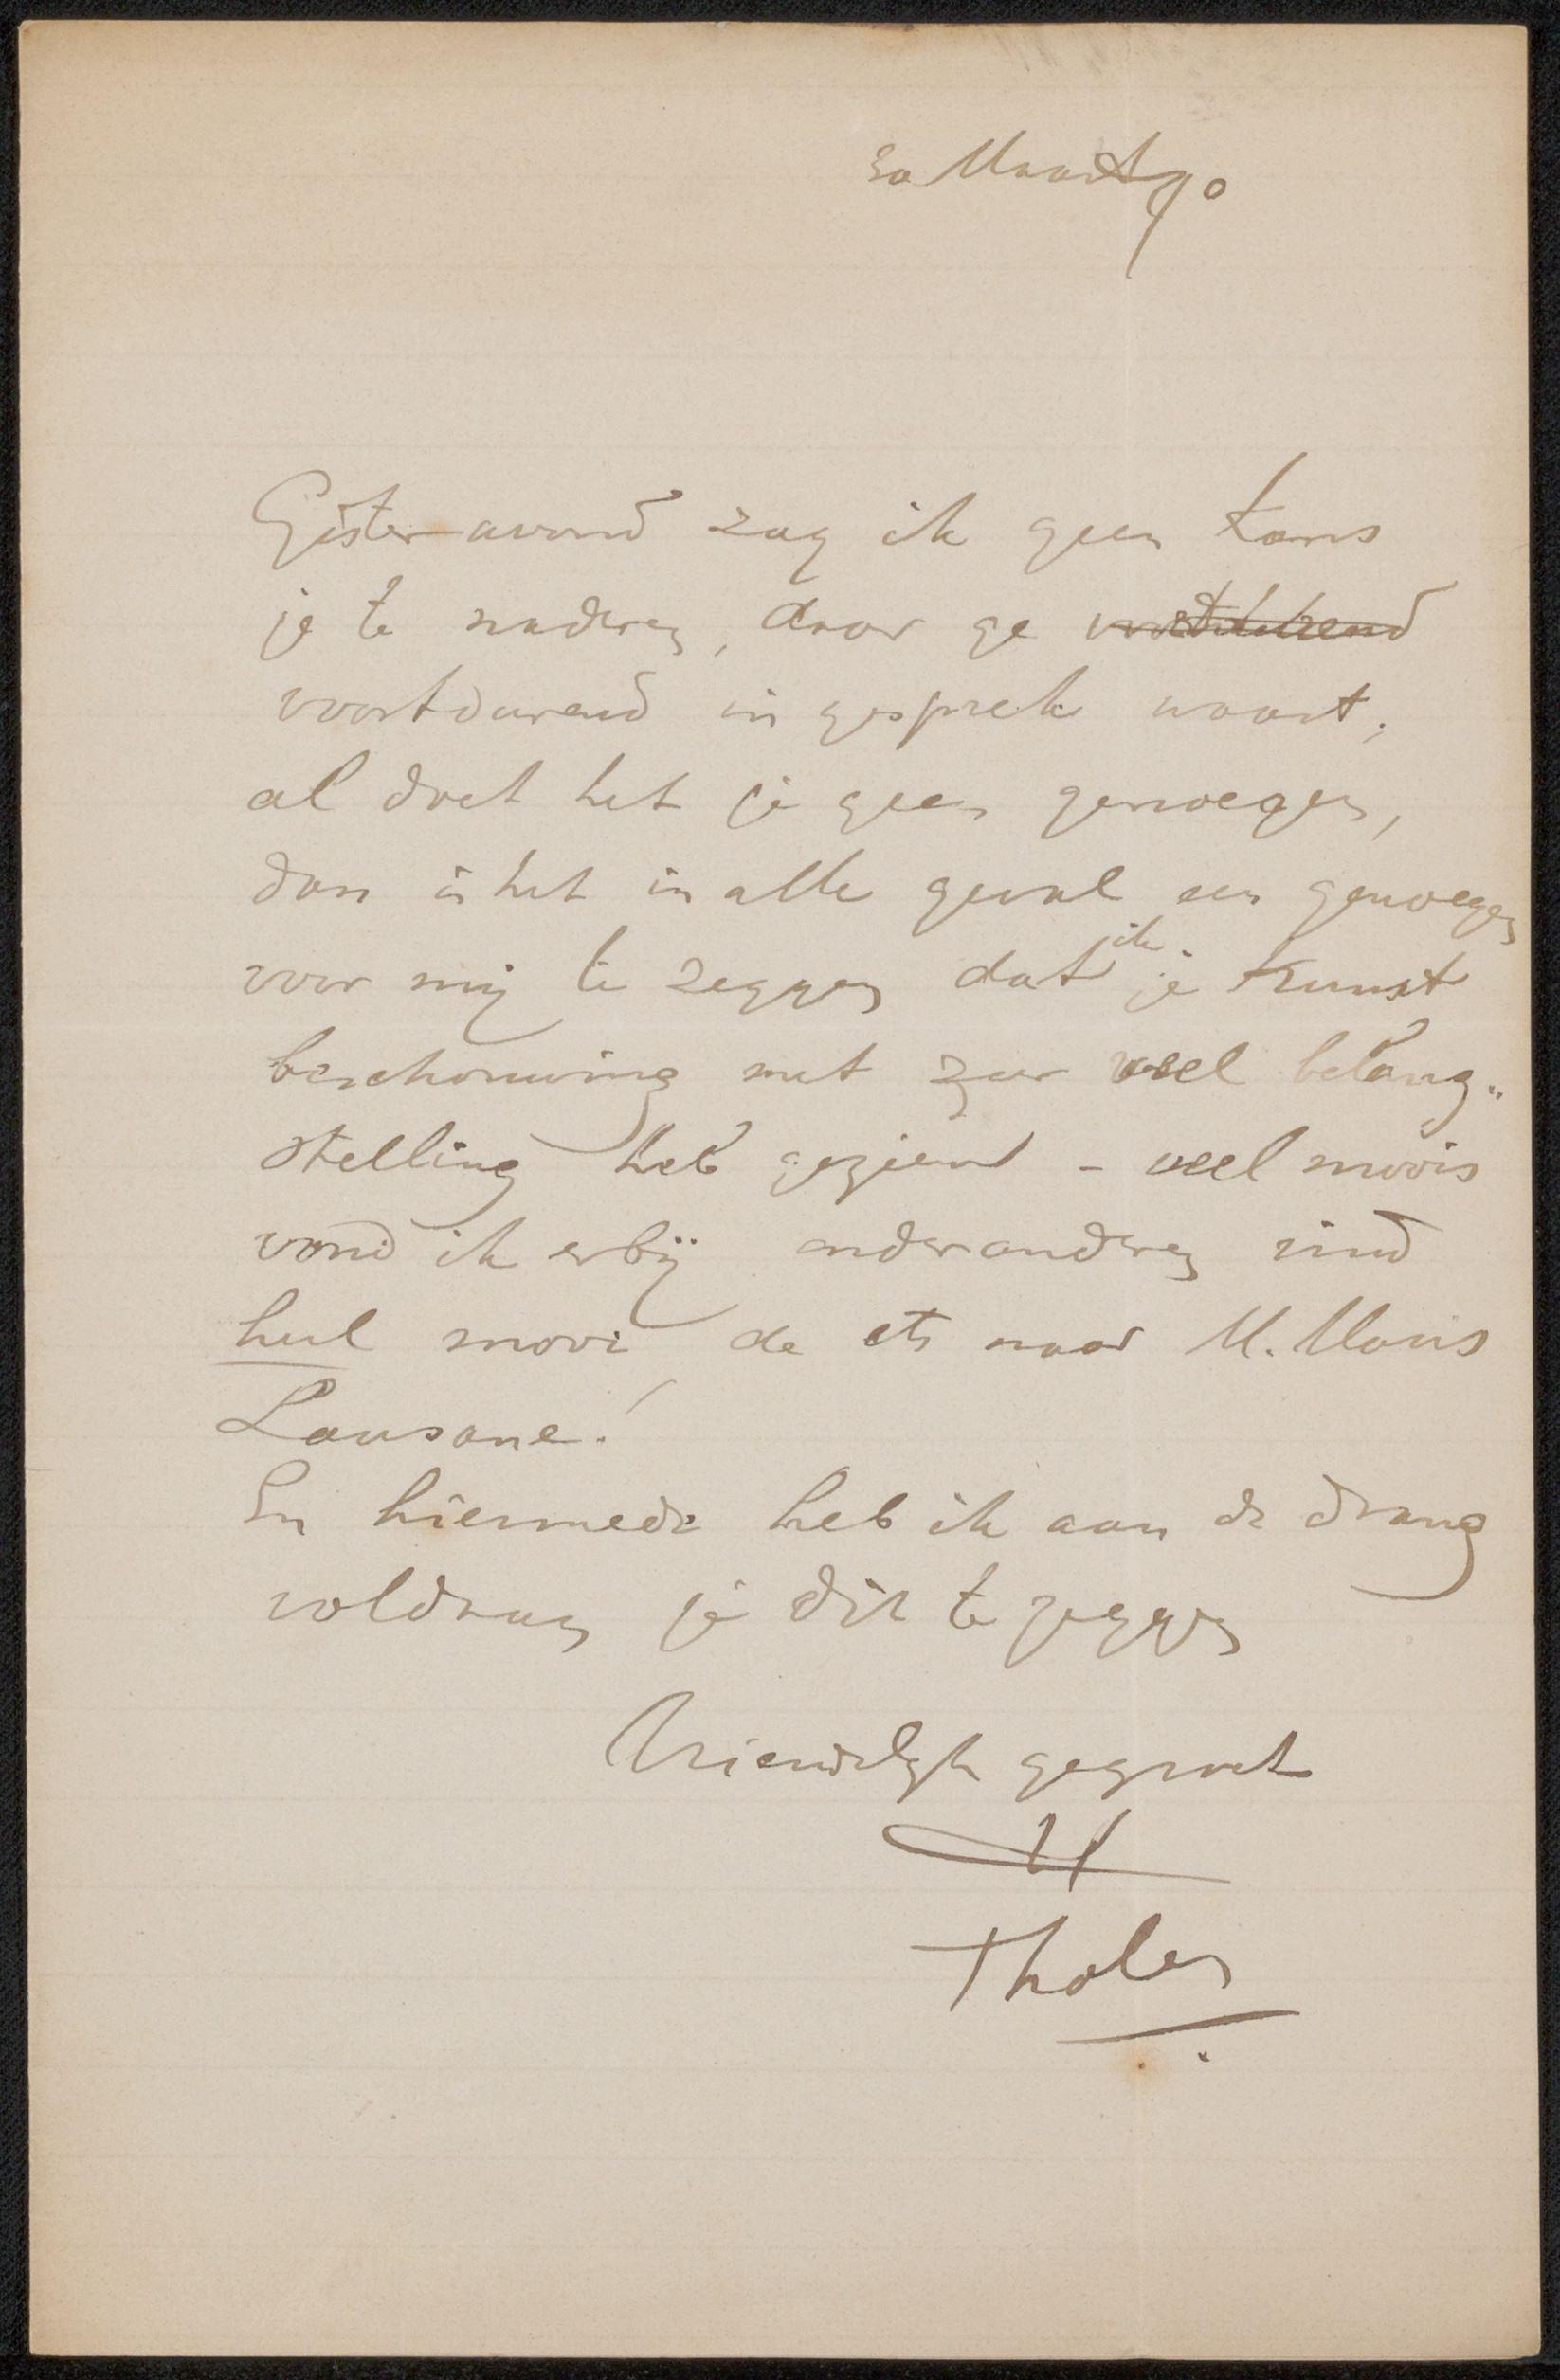 30 Maart 90
Gister avond zag ik geen kans
je te naderen, daar ge
voortdurend in gesprek waart;
al doet het je geen genoegen,
dan is het in alle geval een genoegen
voor mij te zeggen dat ik je Kunst
beschouwing met zeer veel belang„
stelling heb gezien – veel moois
vond ik erbij onder anderen vind
heel mooi de ets naar M. Maris
Lausane!
En hiermede heb ik aan de drang
voldaan je dit te zeggen
Vriendelijk gegroet
Tholen